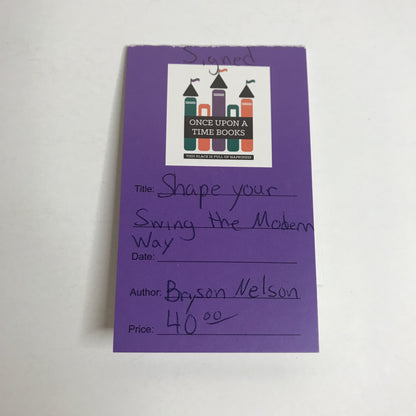 Signed
ONCE UPON A
TIME BOOKS
THIS PLACE IS FULL OF HAPPINESS
Title: Shape your
Swing the Modern
Way
Date:
Author: Bryson Nelson
Price: 40 00